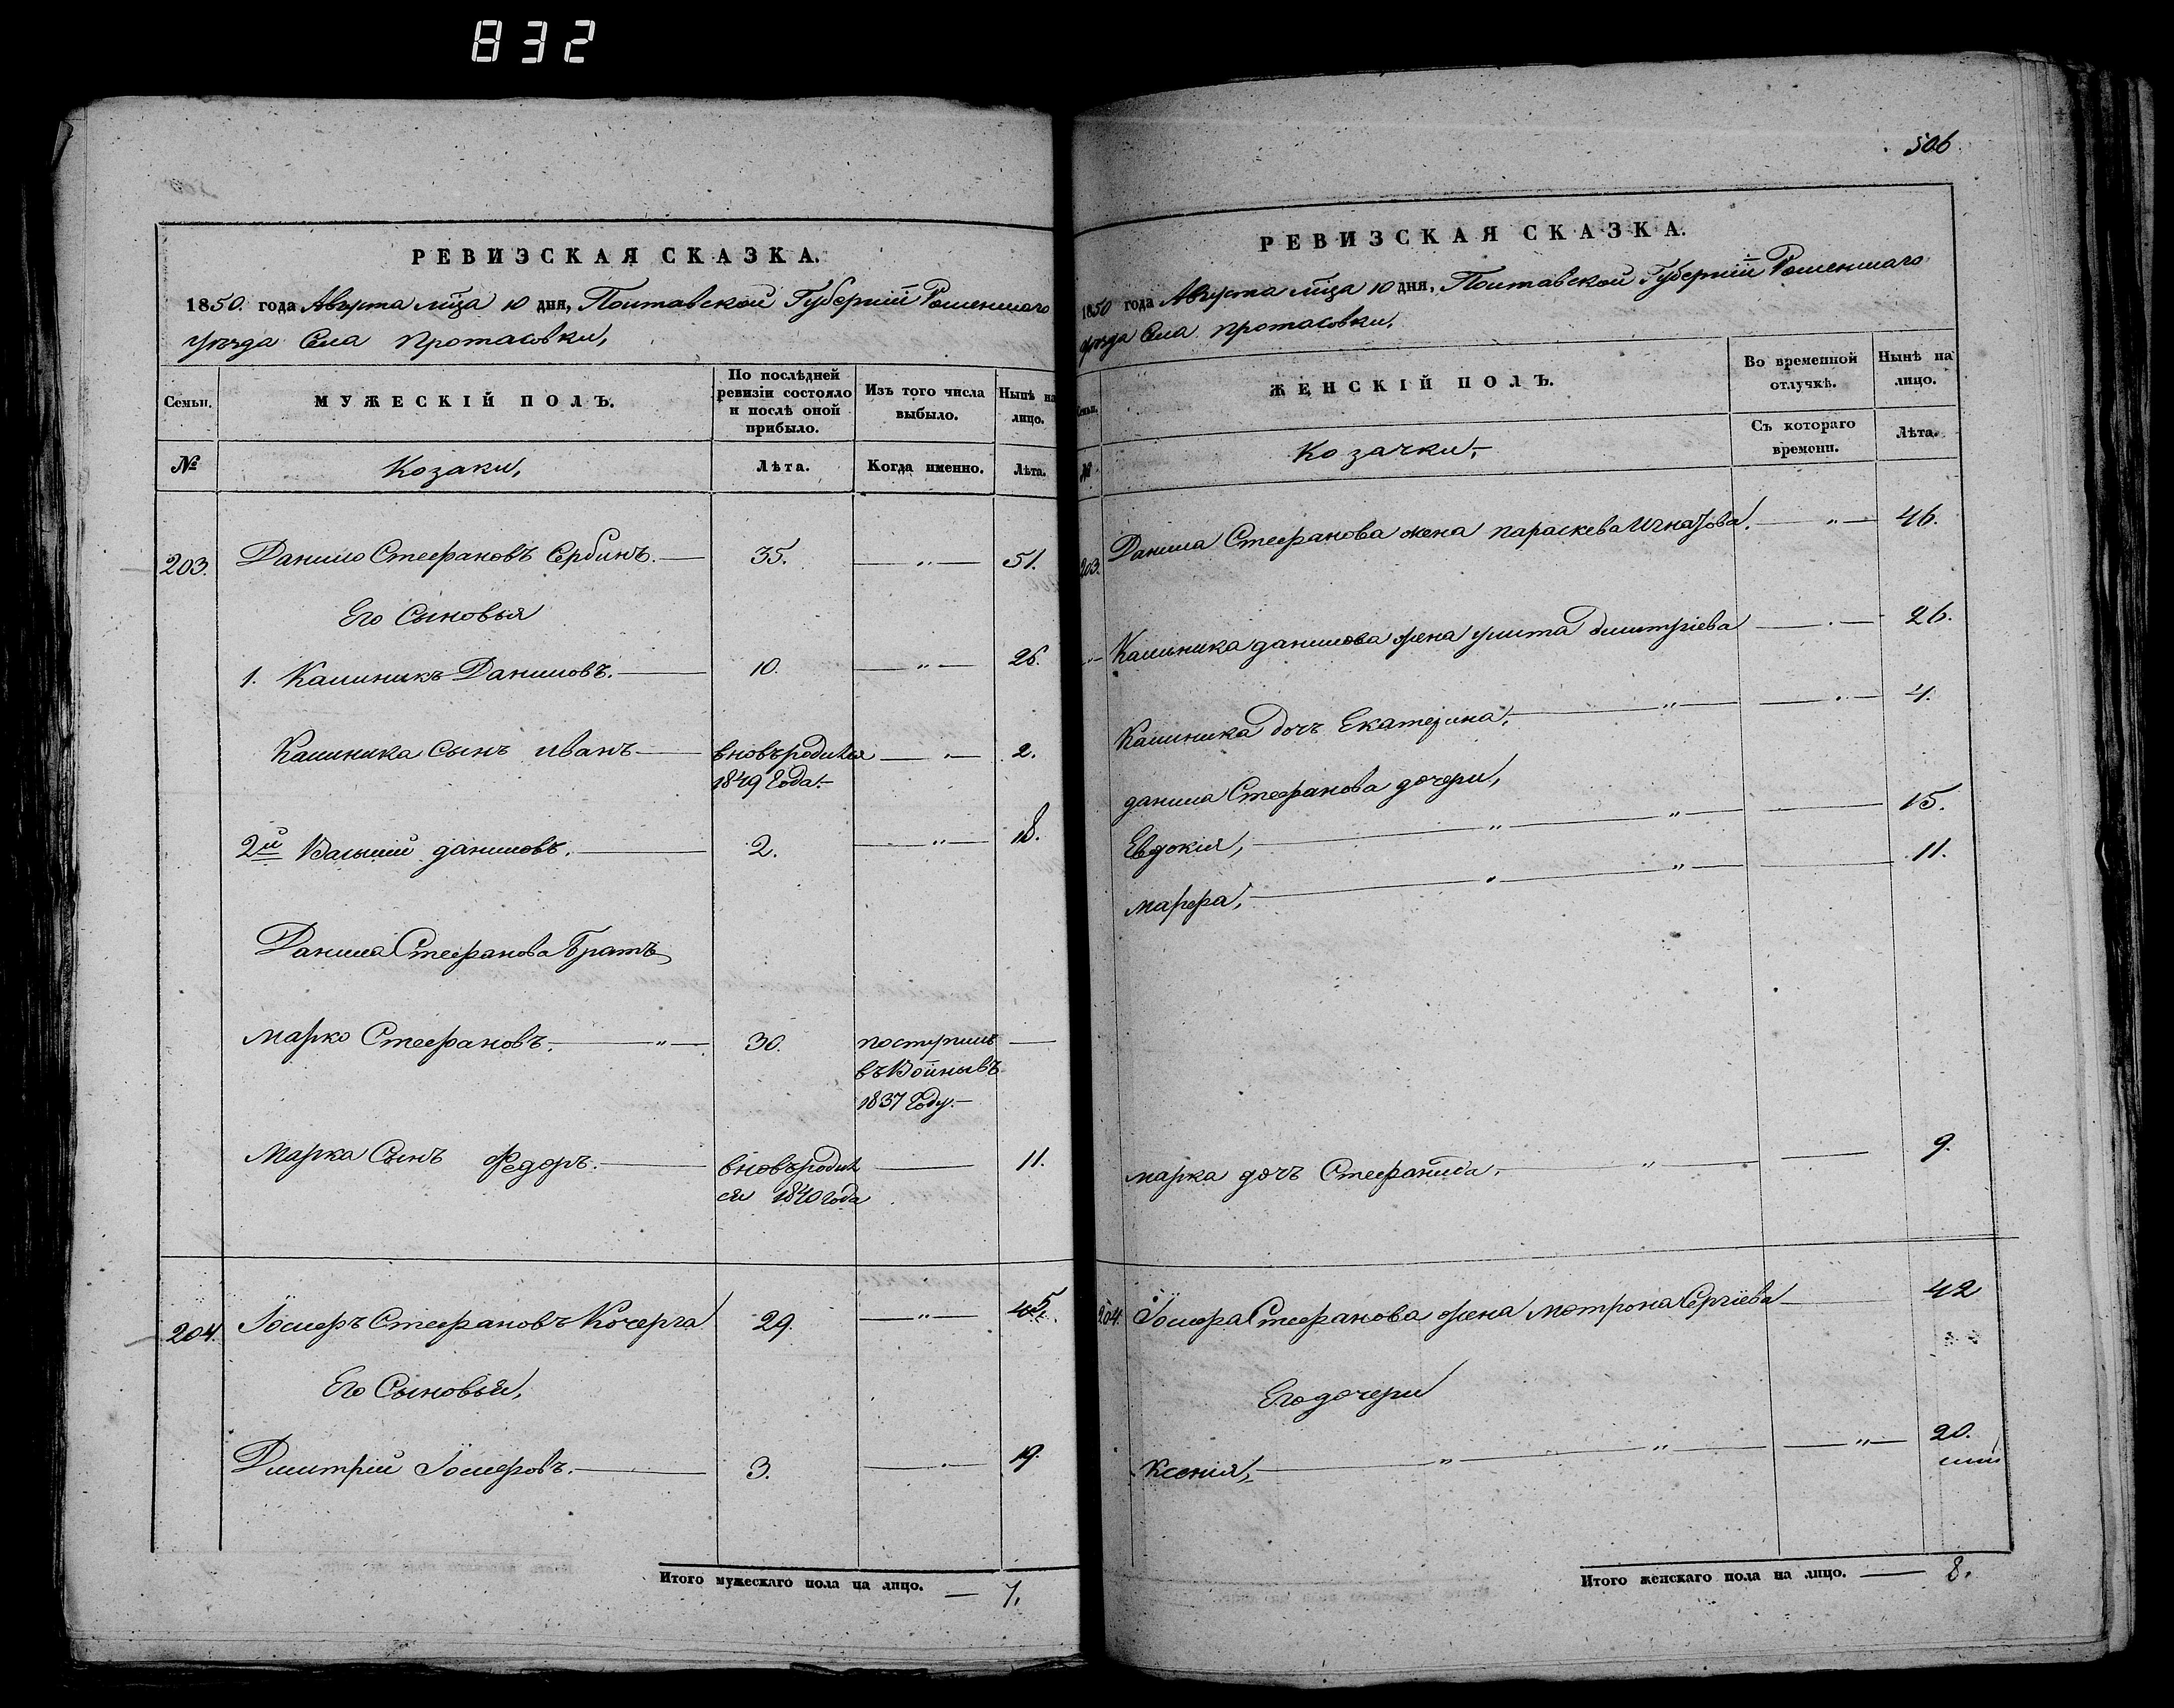 832
РЕВИЗСКАЯ СКАЗКА.
1850. года Августа мца 10 дня, Полтавской Губерніи Роменскаго
уезда Села Протасовки,
Семьи. МУЖЕСКІЙ ПОЛЪ. По послѣдней ревизіи состояло и послѣ оной прибыло. Изъ того числа выбыло. Нынѣ на лицо.
№ Козаки, Лѣта. Когда именно. Лѣта.
203. Данило Стефановъ Сербинъ. 35. — „ — 51.
Его Сыновья
1. Калиникъ Даниловъ. 10. — „ — 26.
Калиника сынъ иванъ вновъродился — „ — 2.
1849 Года.
2й Василий даниловъ. 2. — „ — 18.
Данила Стефанова Братъ
марко Стефановъ. „ 30. поступилъ —
въ Войны въ
1837 Году.
Марка Сынъ Федоръ. вновъродил — 11.
ся 1840 года
204. Іосифъ Стефановъ Кочерга 29. — „ — 45.
Его Сыновья,
Дмитрий Іосифовъ. 3. — „ — 19.
Итого мужескаго пола на лицо. — 7.
506
РЕВИЗСКАЯ СКАЗКА.
1850 года Августа мца 10 дня, Полтавской Губерніи Роменскаго
уезда Села протасовки,
Семьи. ЖЕНСКІЙ ПОЛЪ. Во временной отлучкѣ. Нынѣ на лицо.
Съ котораго времени. Лѣта.
№ Козачки,
203. Данила Стефанова жена параскева Игнатова. — „ — 46.
„ Калиника данилова жена улита дмитріева — „ — 26.
Калиника дочъ Екатерина, „ — „ — 4.
данила Стефанова дочери,
Евдокия, „ „ — 15.
марфа, „ „ — 11.
марка дочъ Стефанида, „ — 9.
204. Іосифа Стефанова жена мотрона Сергіева — 42
Его дочери
Ксения, „ „ — „ — 20.
Итого женскаго пола на лицо. — 8.